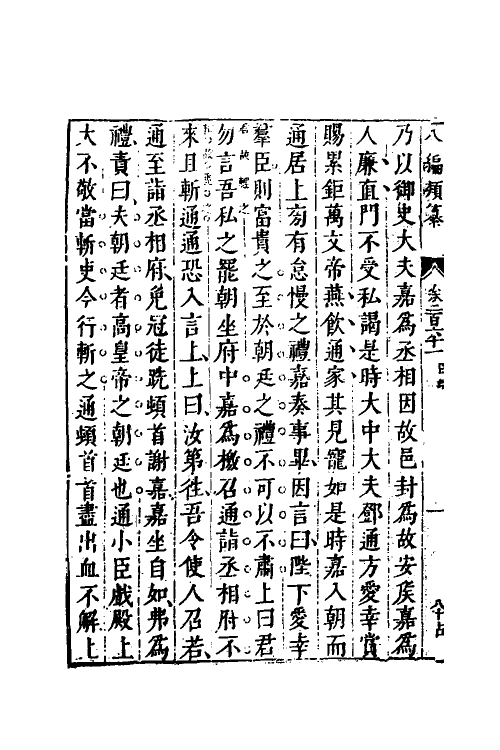 八編類纂 卷二百六十一
乃以御史大夫嘉爲丞相因故邑封爲故安侯嘉爲
人廉直門不受私謁是時大中大夫鄧通方愛幸賞
賜累鉅萬文帝燕飲通家其見寵如是時嘉入朝而
通居上旁有怠慢之禮嘉奏事畢因言曰陛下愛幸
羣臣則富貴之至於朝廷之禮不可以不肅上曰君
勿言吾私之罷朝坐府中嘉爲檄召通詣丞相府不
來且斬通通恐入言上上曰汝第往吾今使人召若
通至詣丞相府免冠徒跣頓首謝嘉嘉坐自如弗爲
禮責曰夫朝廷者高皇帝之朝廷也通小臣戲殿上
大不敬當斬史今行斬之通頓首首盡出血不解上